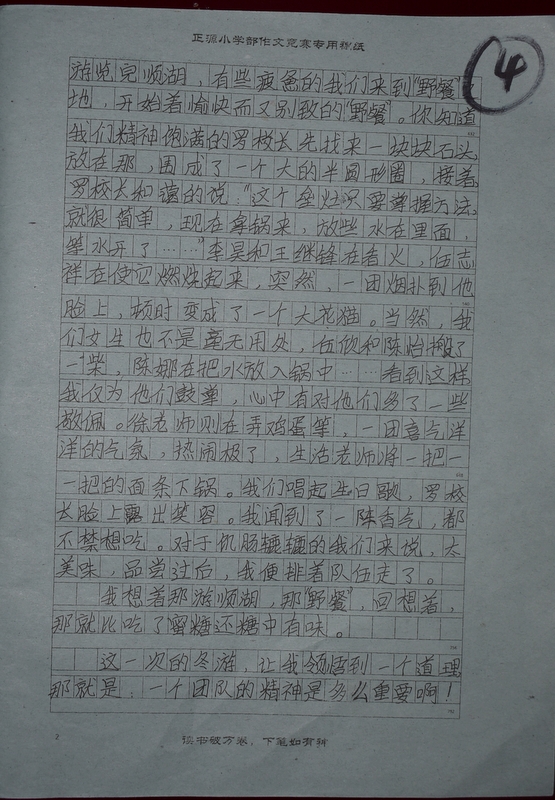 正源小学部作文竞赛专用稿纸
4
游览完顺湖，有些疲惫的我们来到“野餐”
地，开始着愉快而又别致的“野餐”。你知道
我们精神饱满的罗校长先找来一块块石头，
放在那，围成了一个大的半圆形圈，接着，
罗校长和蔼的说：“这个垒灶只要掌握方法，
就很简单，现在拿锅来，放些水在里面，
等水开了……”李昊和王继锋在看火，伍志
祥在使它燃烧起来，突然，一团烟扑到他
脸上，顿时变成了一个大花猫。当然，我
们女生也不是毫无用处，伍欣和陈怡搬了
一柴，陈娜在把水放入锅中……看到这样
我仅为他们鼓掌，心中有对他们多了一些
敬佩。徐老师则在弄鸡蛋等，一团喜气洋
洋的气氛，热闹极了，生活老师将一把一
一把的面条下锅。我们唱起生日歌，罗校
长脸上露出笑容。我闻到了一陈香气，都
不禁想吃。对于饥肠辘辘的我们来说，太
美味，品尝过后，我便排着队伍走了。
我想着那游顺湖，那“野餐”，回想着，
那就比吃了蜜糖还糖中有味。
这一次的冬游，让我领悟到一个道理
那就是：一个团队的精神是多么重要啊！
2
读书破万卷，下笔如有神